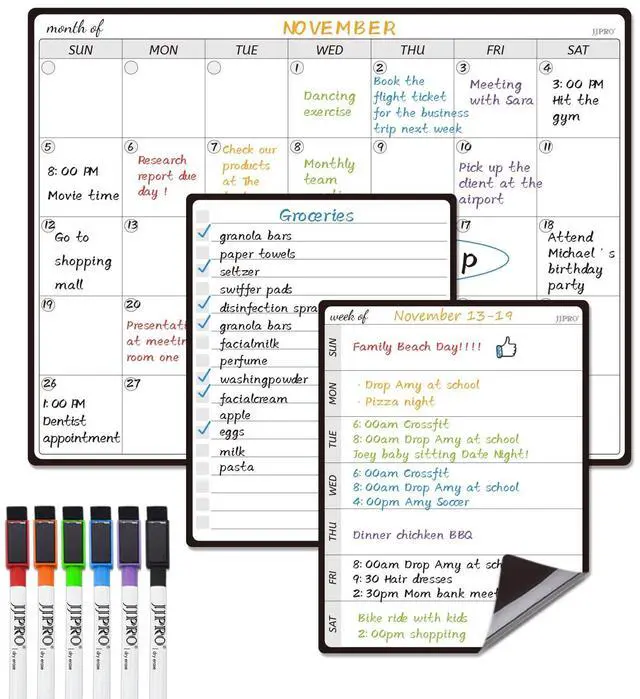 month of NOVEMBER JJPRO
SUN MON TUE WED THU FRI SAT
1
Dancing
exercise
2
Book the
flight ticket
for the business
trip next week
3
Meeting
with Sara
4
3:00 PM
Hit the
gym
5
8:00 PM
Movie time
6
Research
report due
day !
7
Check our
products
at The
8
Monthly
team
9
10
Pick up the
client at the
airport
11
12
Go to
shopping
mall
13
17
p
18
Attend
Michael 's
birthday
party
19
20
Presentati
at meetin
room one
26
1:00 PM
Dentist
appointment
27
Groceries
granola bars
paper towels
seltzer
swiffer pads
disinfection spra
granola bars
facialmilk
perfume
washingpowder
facialcream
apple
eggs
milk
pasta
week of November 13-19 JJPRO
SUN
Family Beach Day!!!!
MON
· Drop Amy at school
· Pizza night
TUE
6:00am Crossfit
8:00am Drop Amy at school
Joey baby sitting Date Night!
WED
6:00am Crossfit
8:00am Drop Amy at school
4:00pm Amy Soccer
THU
Dinner chichken BBQ
FRI
8:00am Drop Amy at sch
9:30 Hair dresses
2:30pm Mom bank meet
SAT
Bike ride with kids
2:00pm shoppting
JJPRO dry erase
JJPRO dry erase
JJPRO dry erase
JJPRO dry erase
JJPRO dry erase
JJPRO dry erase